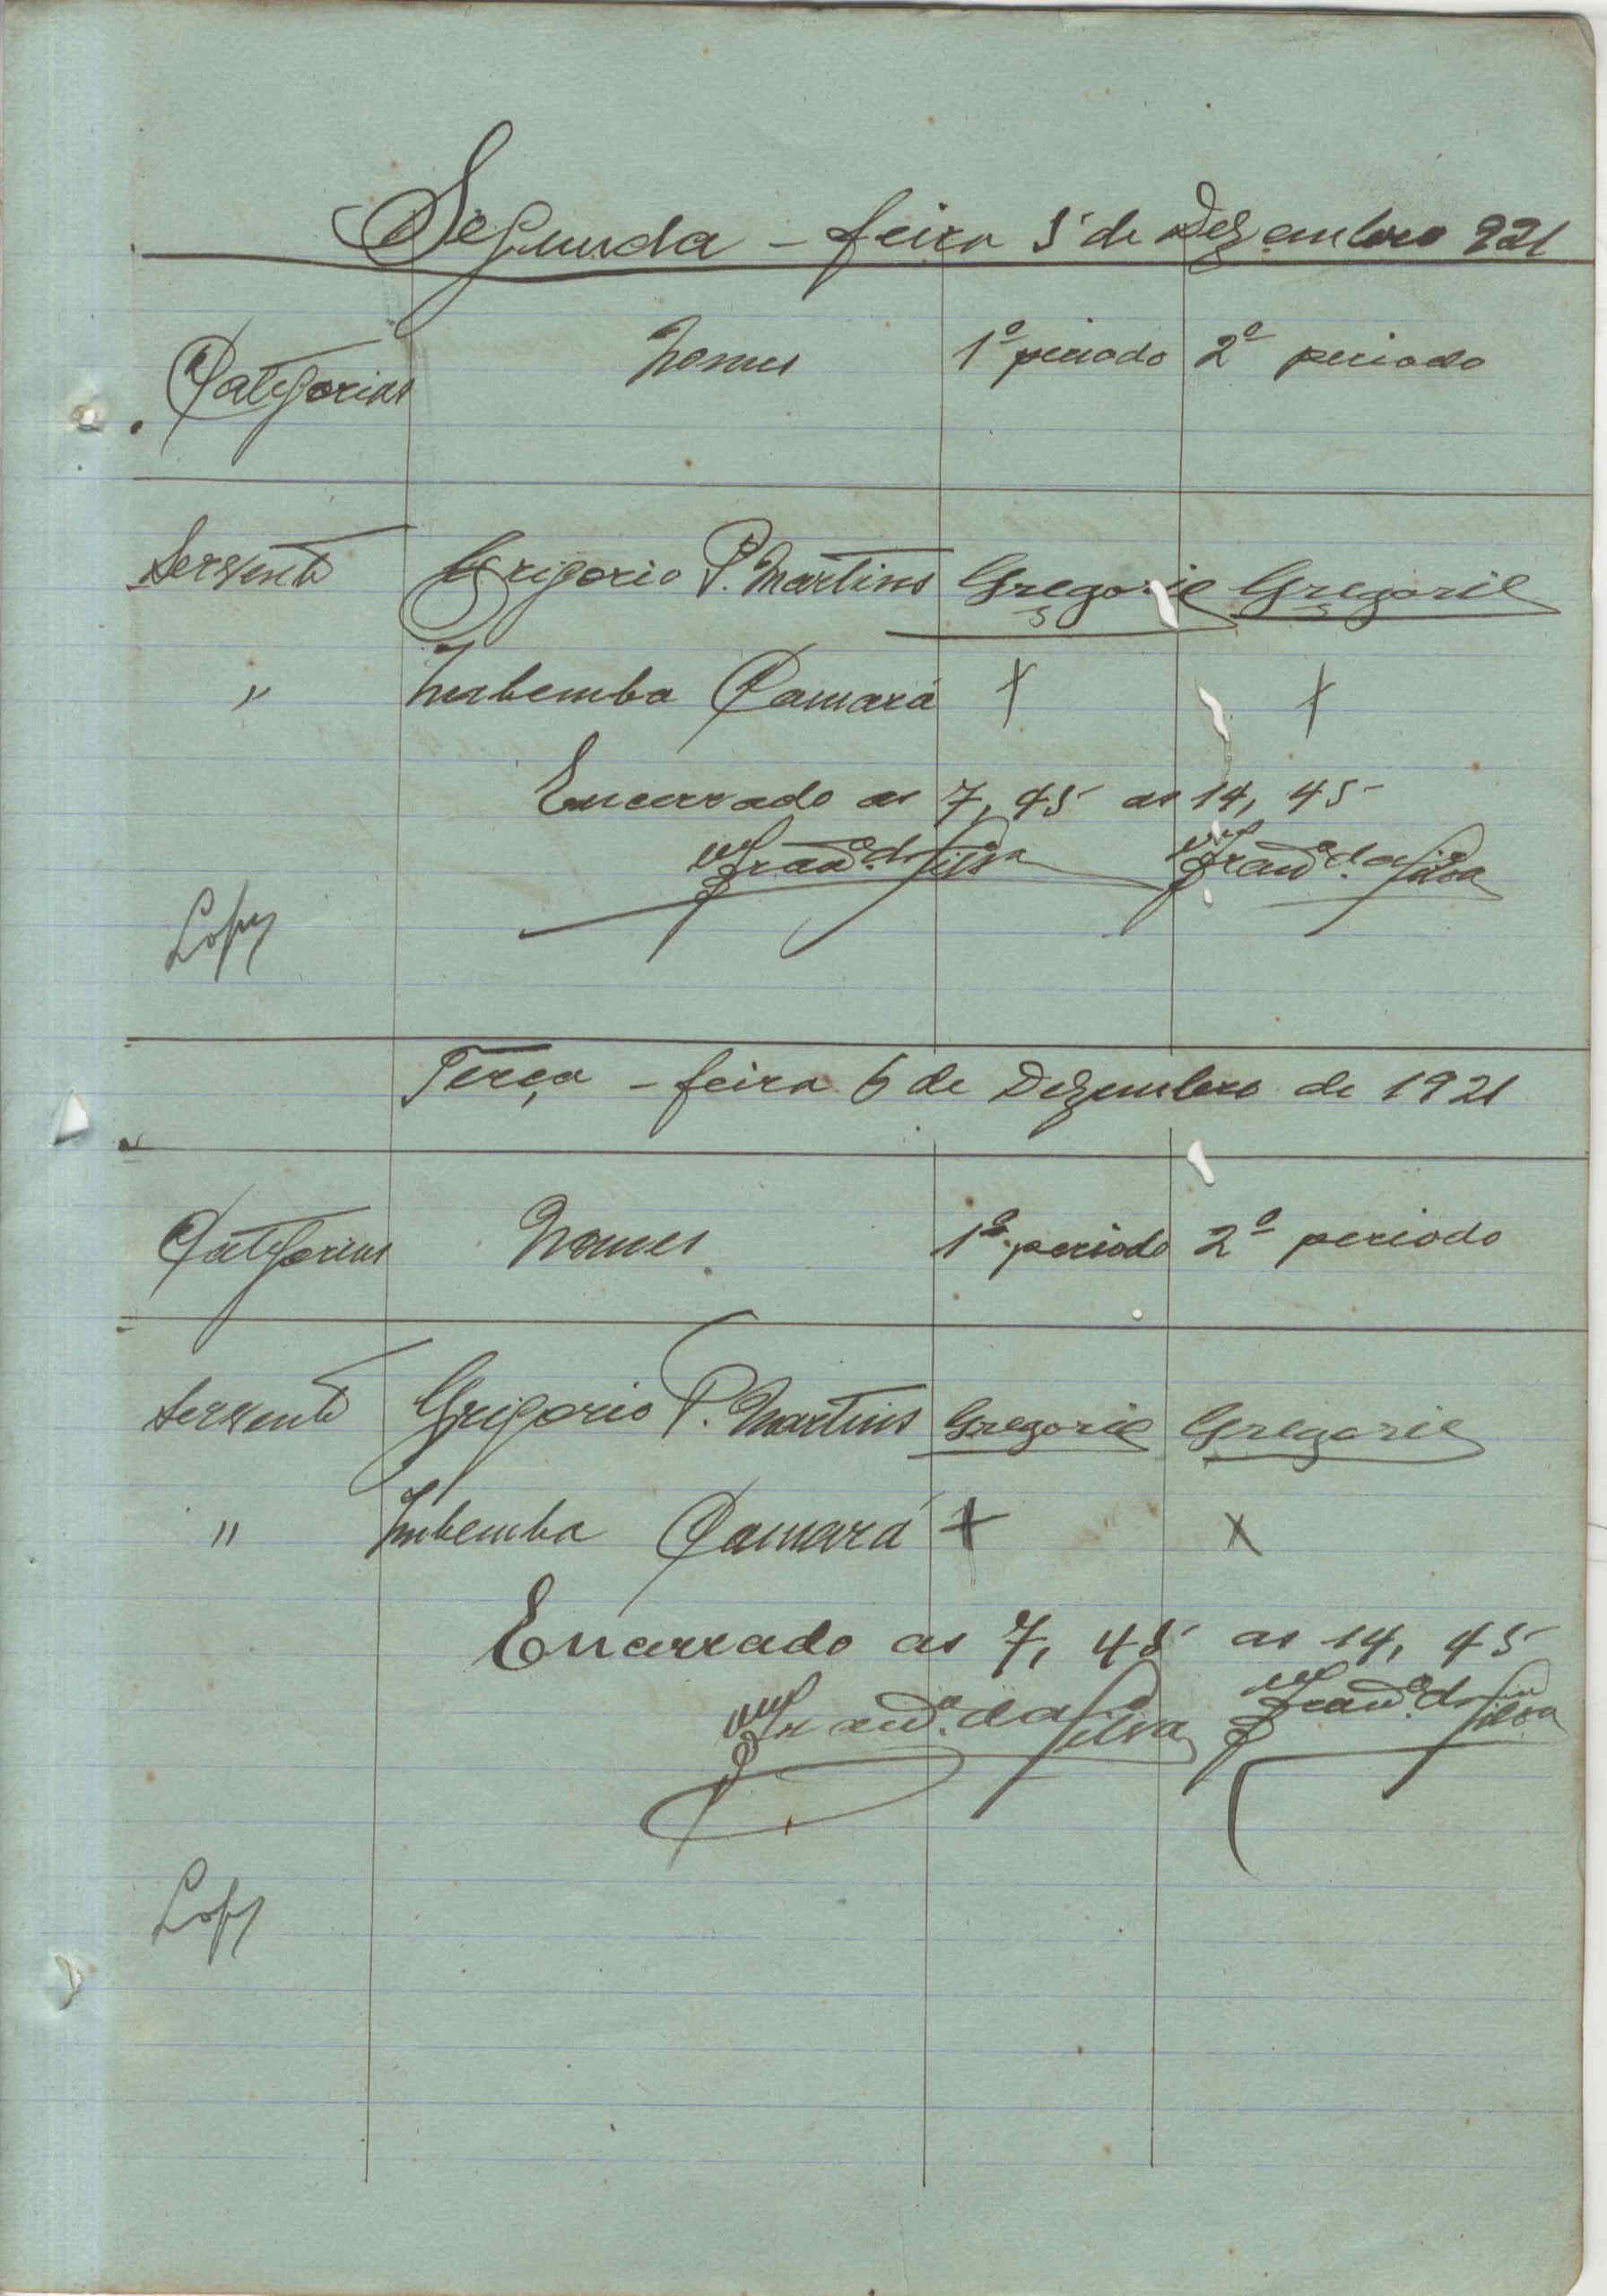 Segunda - feira 5 de Dezembro 921
Categorias Nomes 1º periodo 2º periodo
Servente Grigorio P. Martins Gregorio Gregorio
" Imbemba Camará + +
Encerrado as 7, 45 as 14, 45
Franco. da Silva Franco. da Silva
Lopes
Terça - feira 6 de Dezembro de 1921
Categorias Nomes 1º periodo 2º periodo
Servente Grigorio P. Martins Gregorio Gregorio
" Imbemba Camará + x
Encerrado as 7, 45 as 14, 45
da Silva da Silva
Lopes